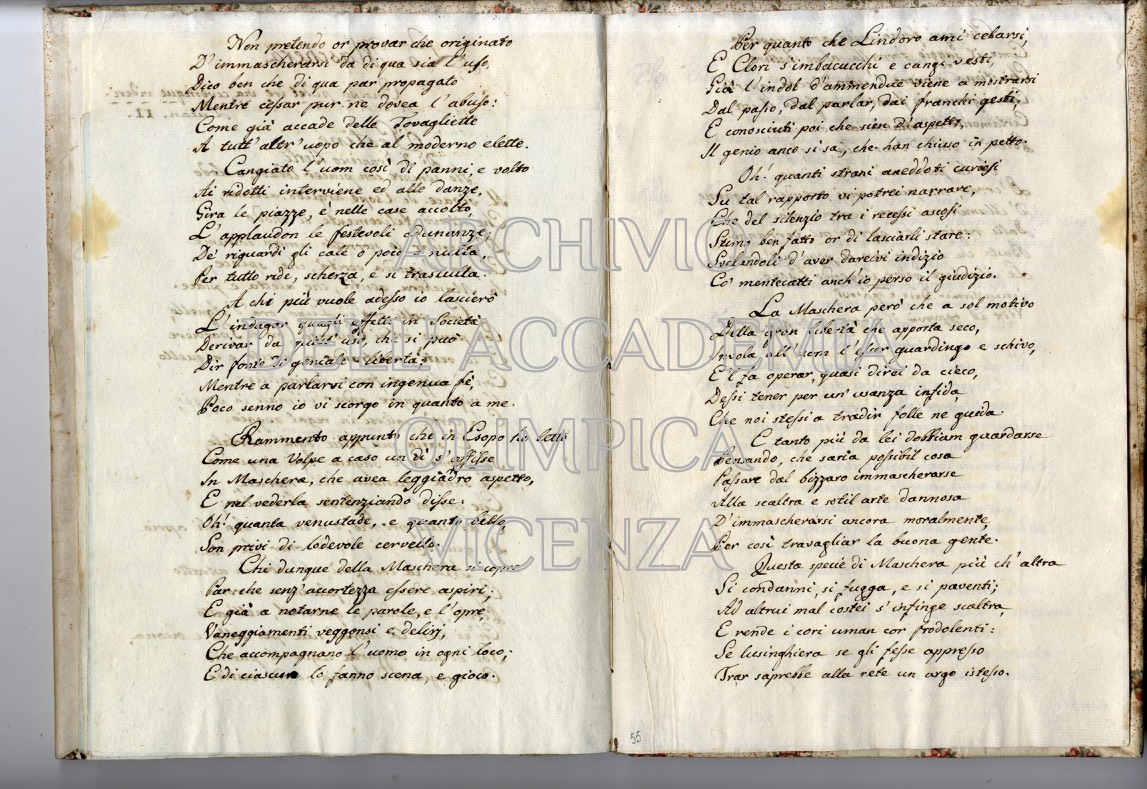 Non pretendo or provar che originato
D'immascherarsi da di qua sia l'uso,
Dico ben che di qua par propagato
Mentre cessar pur ne dovea l'abuso:
Come già accade delle Tovagliette
A tutt'altr'uopo che al moderno elette.
Cangiato l'uom così di panni, e volto
Ai ridotti interviene ed alle danze,
Gira le piazze, è nelle case accolto,
L'applaudon le festevoli adunanze;
De' riguardi gli cale o poco o nulla,
Per tutto ride, scherza, e si trastulla.
A chi più vuole adesso io lascierò
L'indagar quagli effetti in Società
Derivar da quest'uso, che si può
Dir fonte di geniale libertà,
Mentre a parlarvi con ingenua fè,
Poco senno io vi scorgo in quanto a me.
Rammento appunto che in Esopo ho letto
Come una Volpe a caso un dì s'affisse
In Maschera, che avea leggiadro aspetto,
E nel vederla sentenziando disse:
Oh! quanta venustade, e quanto bello,
Son privi di lodevole cervello.
Chi dunque della Maschera si copre
Par che senz'accortezza essere aspiri;
E già a notarne le parole, e l'opre,
Vaneggiamenti veggonsi e delirj,
Che accompagnano l'uomo in ogni loco;
E di ciascuno lo fanno scena, e gioco.
Per quanto che Lindoro ami celarsi,
E Clori s'imbacucchi e cangi vesti,
Già l'indol d'ammendue viene a mostrarsi
Dal passo, dal parlar, dai franchi gesti;
E conosciuti poi che sien d'aspetto,
Il genio anco si sa, che han chiuso in petto.
Oh! quanti strani aneddoti curiosi
Su tal rapporto vi potrei narrare,
Che del silenzio tra i recessi ascosi
Stimo ben fatto or di lasciarli stare:
Svelandoli d'aver dareivi indizio
Co' mentecatti anch'io perso il giudizio.
La Maschera però che a sol motivo
Della gran libertà che apporta seco,
Invola all'uom l'esser guardingo e schivo,
E l fa operar, quasi direi da cieco,
Dessi tener per un'usanza infida
Che noi stessi a tradir folle ne guida.
E tanto più da lei dobbiam guardarse
Pensando, che saria possibil cosa
Passare dal bizzaro immascherarse
Alla scaltra e sotil arte dannosa
D'immascherarsi ancora moralmente,
Per così travagliar la buona gente.
Questa specie di Maschera più ch'altra
Si condanni, si fugga, e si paventi;
Ad altrui mal costei s'infinge scaltra,
E rende i cori uman cor frodolenti:
Se lusinghiera se gli fesse appresso
Trar saprebbe alla rete un argo istesso.
56
ARCHIVIO
DELL'ACCADEMIA
OLIMPICA
VICENZA